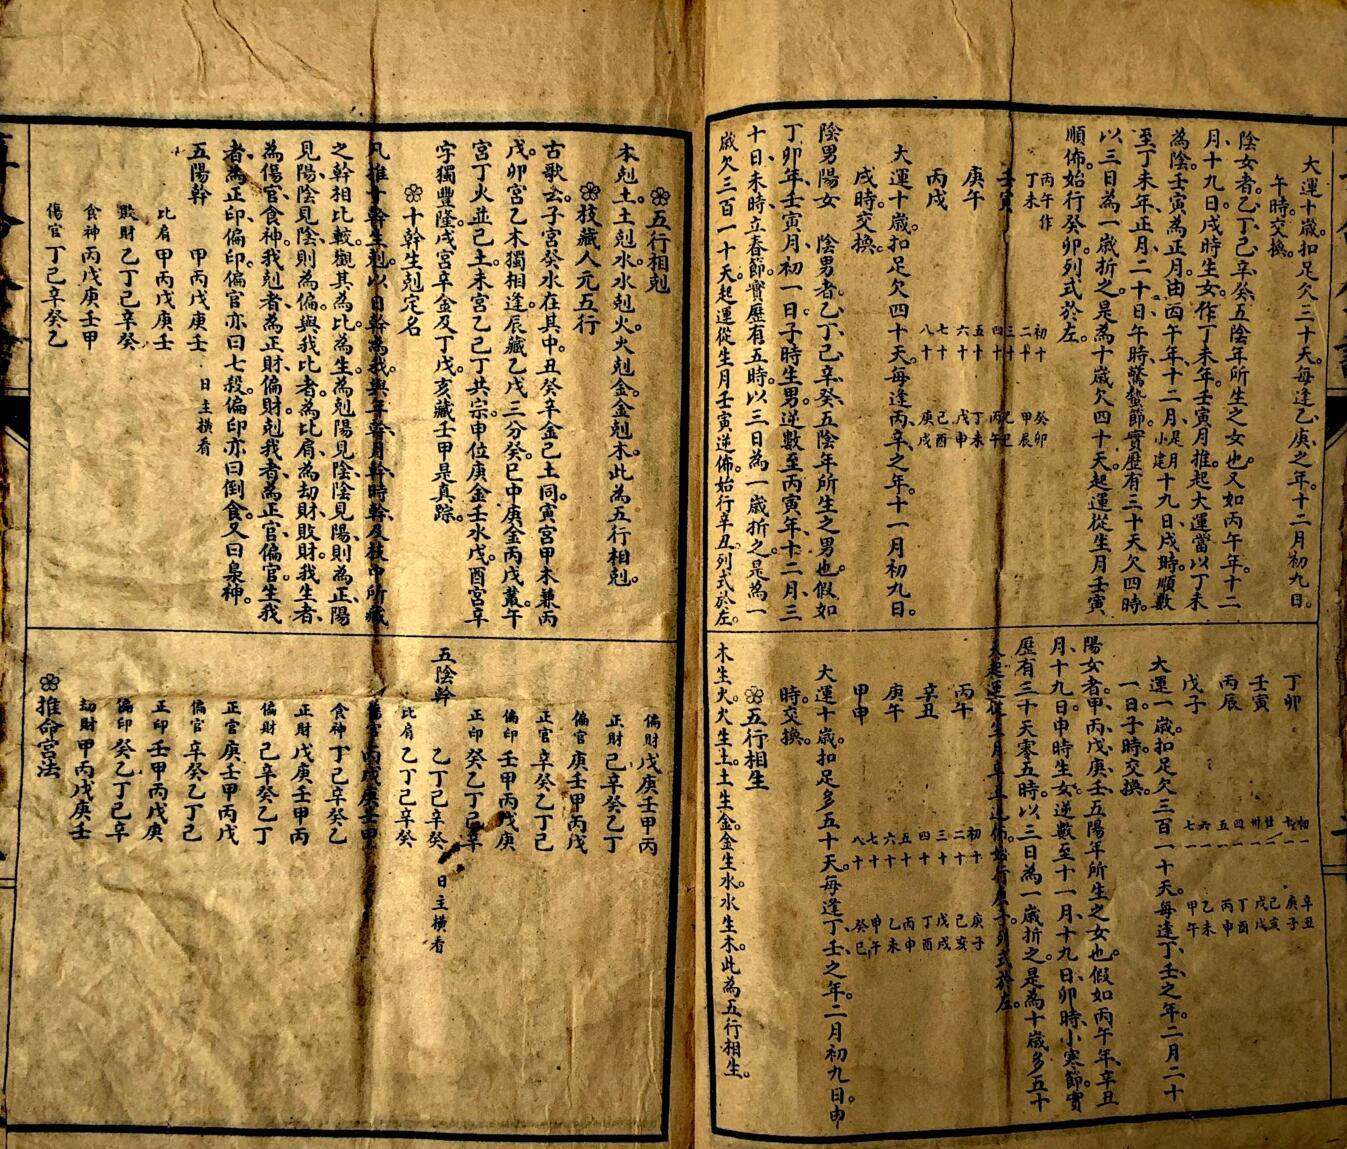 大運十歲扣足欠三十天。每逢乙、庚之年。十二月初九日。
午時交換。
陰女者。乙、丁、己、辛、癸、五陰年所生之女也。又如丙午年十二
月、十九日、戌時生女。作丁未年、壬寅月推起大運當以丁未
為陰。壬寅為正月。由丙午年、十二月、足月小建十九日、戌時。順數
至丁未年、正月、二十日、午時、驚蟄節。實歷有三十天欠四時。
以三日為一歲折之。是為十歲欠四十天。起運從生月壬寅
順佈。始行癸卯。列式於左。
丙午作
丁未
壬寅
庚午
丙戌
初十 癸卯
二十 甲辰
三十 乙巳
四十 丙午
五十 丁未
六十 戊申
七十 己酉
八十 庚戌
大運十歲。扣足欠四十天。每逢丙、辛、之年。十一月初九日。
戌時交換。
陰男陽女 陰男者。乙、丁、己、辛、癸、五陰年所生之男也。假如
丁卯年、壬寅月、初一日子時生男。逆數至丙寅年、十二月、三
十日、未時、立春節。實歷有五時。以三日為一歲折之。是為一
歲欠三百一十天。起運從生月壬寅逆佈。始行辛丑。列式於左。
丁卯
壬寅
丙辰
戊子
初一 辛丑
十一 庚子
廿一 己亥
卅一 戊戌
四一 丁酉
五一 丙申
六一 乙未
七一 甲午
大運一歲。扣足欠三百一十天。每逢丁、壬、之年。二月二十
一日、子時。交換。
陽女者。甲、丙、戊、庚、壬、五陽年所生之女也。假如丙午年、辛丑
月、十九日、申時生女。逆數至十一月、十九日、卯時、小寒節。實
歷有三十天零五時。以三日為一歲折之。是為十歲多五十
天起運從生月辛丑逆佈。始行庚子。列式於左。
丙午
辛丑
庚午
甲申
初十 庚子
二十 己亥
三十 戊戌
四十 丁酉
五十 丙申
六十 乙未
七十 甲午
八十 癸巳
大運十歲。扣足多五十天。每逢丁、壬、之年。二月初九日。申
時。交換。
❀五行相生
木生火。火生土。土生金。金生水。水生木。此為五行相生。
❀五行相剋
木剋土。土剋水。水剋火。火剋金。金剋木。此為五行相剋。
❀枝藏人元五行
古歌云。子宮癸水在其中。丑癸辛金己土同。寅宮甲木兼丙
戊。卯宮乙木獨相逢。辰藏乙戊三分癸。巳中庚金丙戊叢。午
宮丁火並己土。未宮乙己丁共宗。申位庚金壬水戊。酉宮辛
字獨豐隆。戌宮辛金及丁戊。亥藏壬甲是真踪。
❀十幹生剋定名
凡推十幹生剋。以日幹為我。與年幹、月幹、時幹、及枝中所藏
之幹相比較。觀其為比。為生。為剋。陽見陰。陰見陽。則為正。陽
見陽。陰見陰。則為偏。與我比者。為比肩、為劫財、敗財。我生者、
為傷官、食神。我剋者。為正財、偏財。剋我者。為正官、偏官。生我
者。為正印、偏印。偏官亦曰七殺。偏印亦曰倒食。又曰梟神。
五陽幹 甲丙戊庚壬 日主橫看
比肩 甲丙戊庚壬
敗財 乙丁己辛癸
食神 丙戊庚壬甲
傷官 丁己辛癸乙
偏財 戊庚壬甲丙
正財 己辛癸乙丁
偏官 庚壬甲丙戊
正官 辛癸乙丁己
偏印 壬甲丙戊庚
正印 癸乙丁己辛
五陰幹 乙丁己辛癸 日主橫看
比肩 乙丁己辛癸
傷官 丙戊庚壬甲
食神 丁己辛癸乙
正財 戊庚壬甲丙
偏財 己辛癸乙丁
正官 庚壬甲丙戊
偏官 辛癸乙丁己
正印 壬甲丙戊庚
偏印 癸乙丁己辛
劫財 甲丙戊庚壬
❀推命宮法